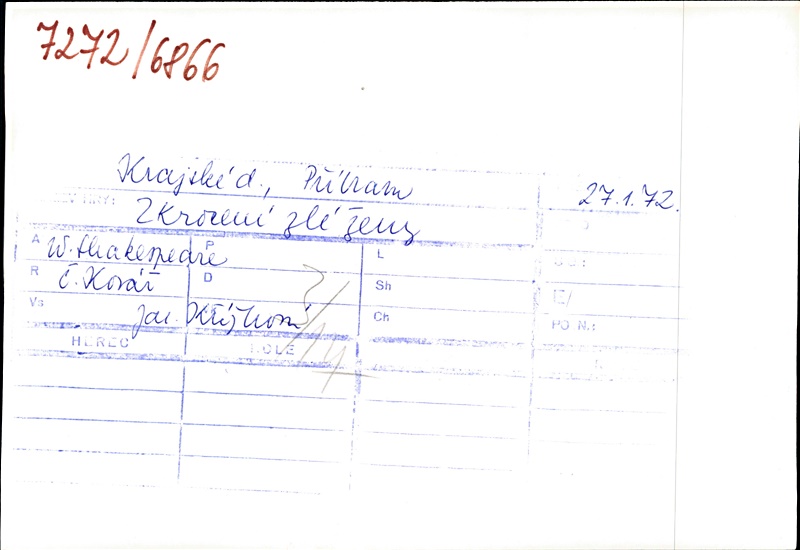 7272/6866
Krajské d., Příbram
27.1.72.
HRY: Zkrocení zlé ženy
A W. Shakespeare P L
R Č. Kovář D Sh
Vs Jar. Ch
PO N.:
HEREC ROLE